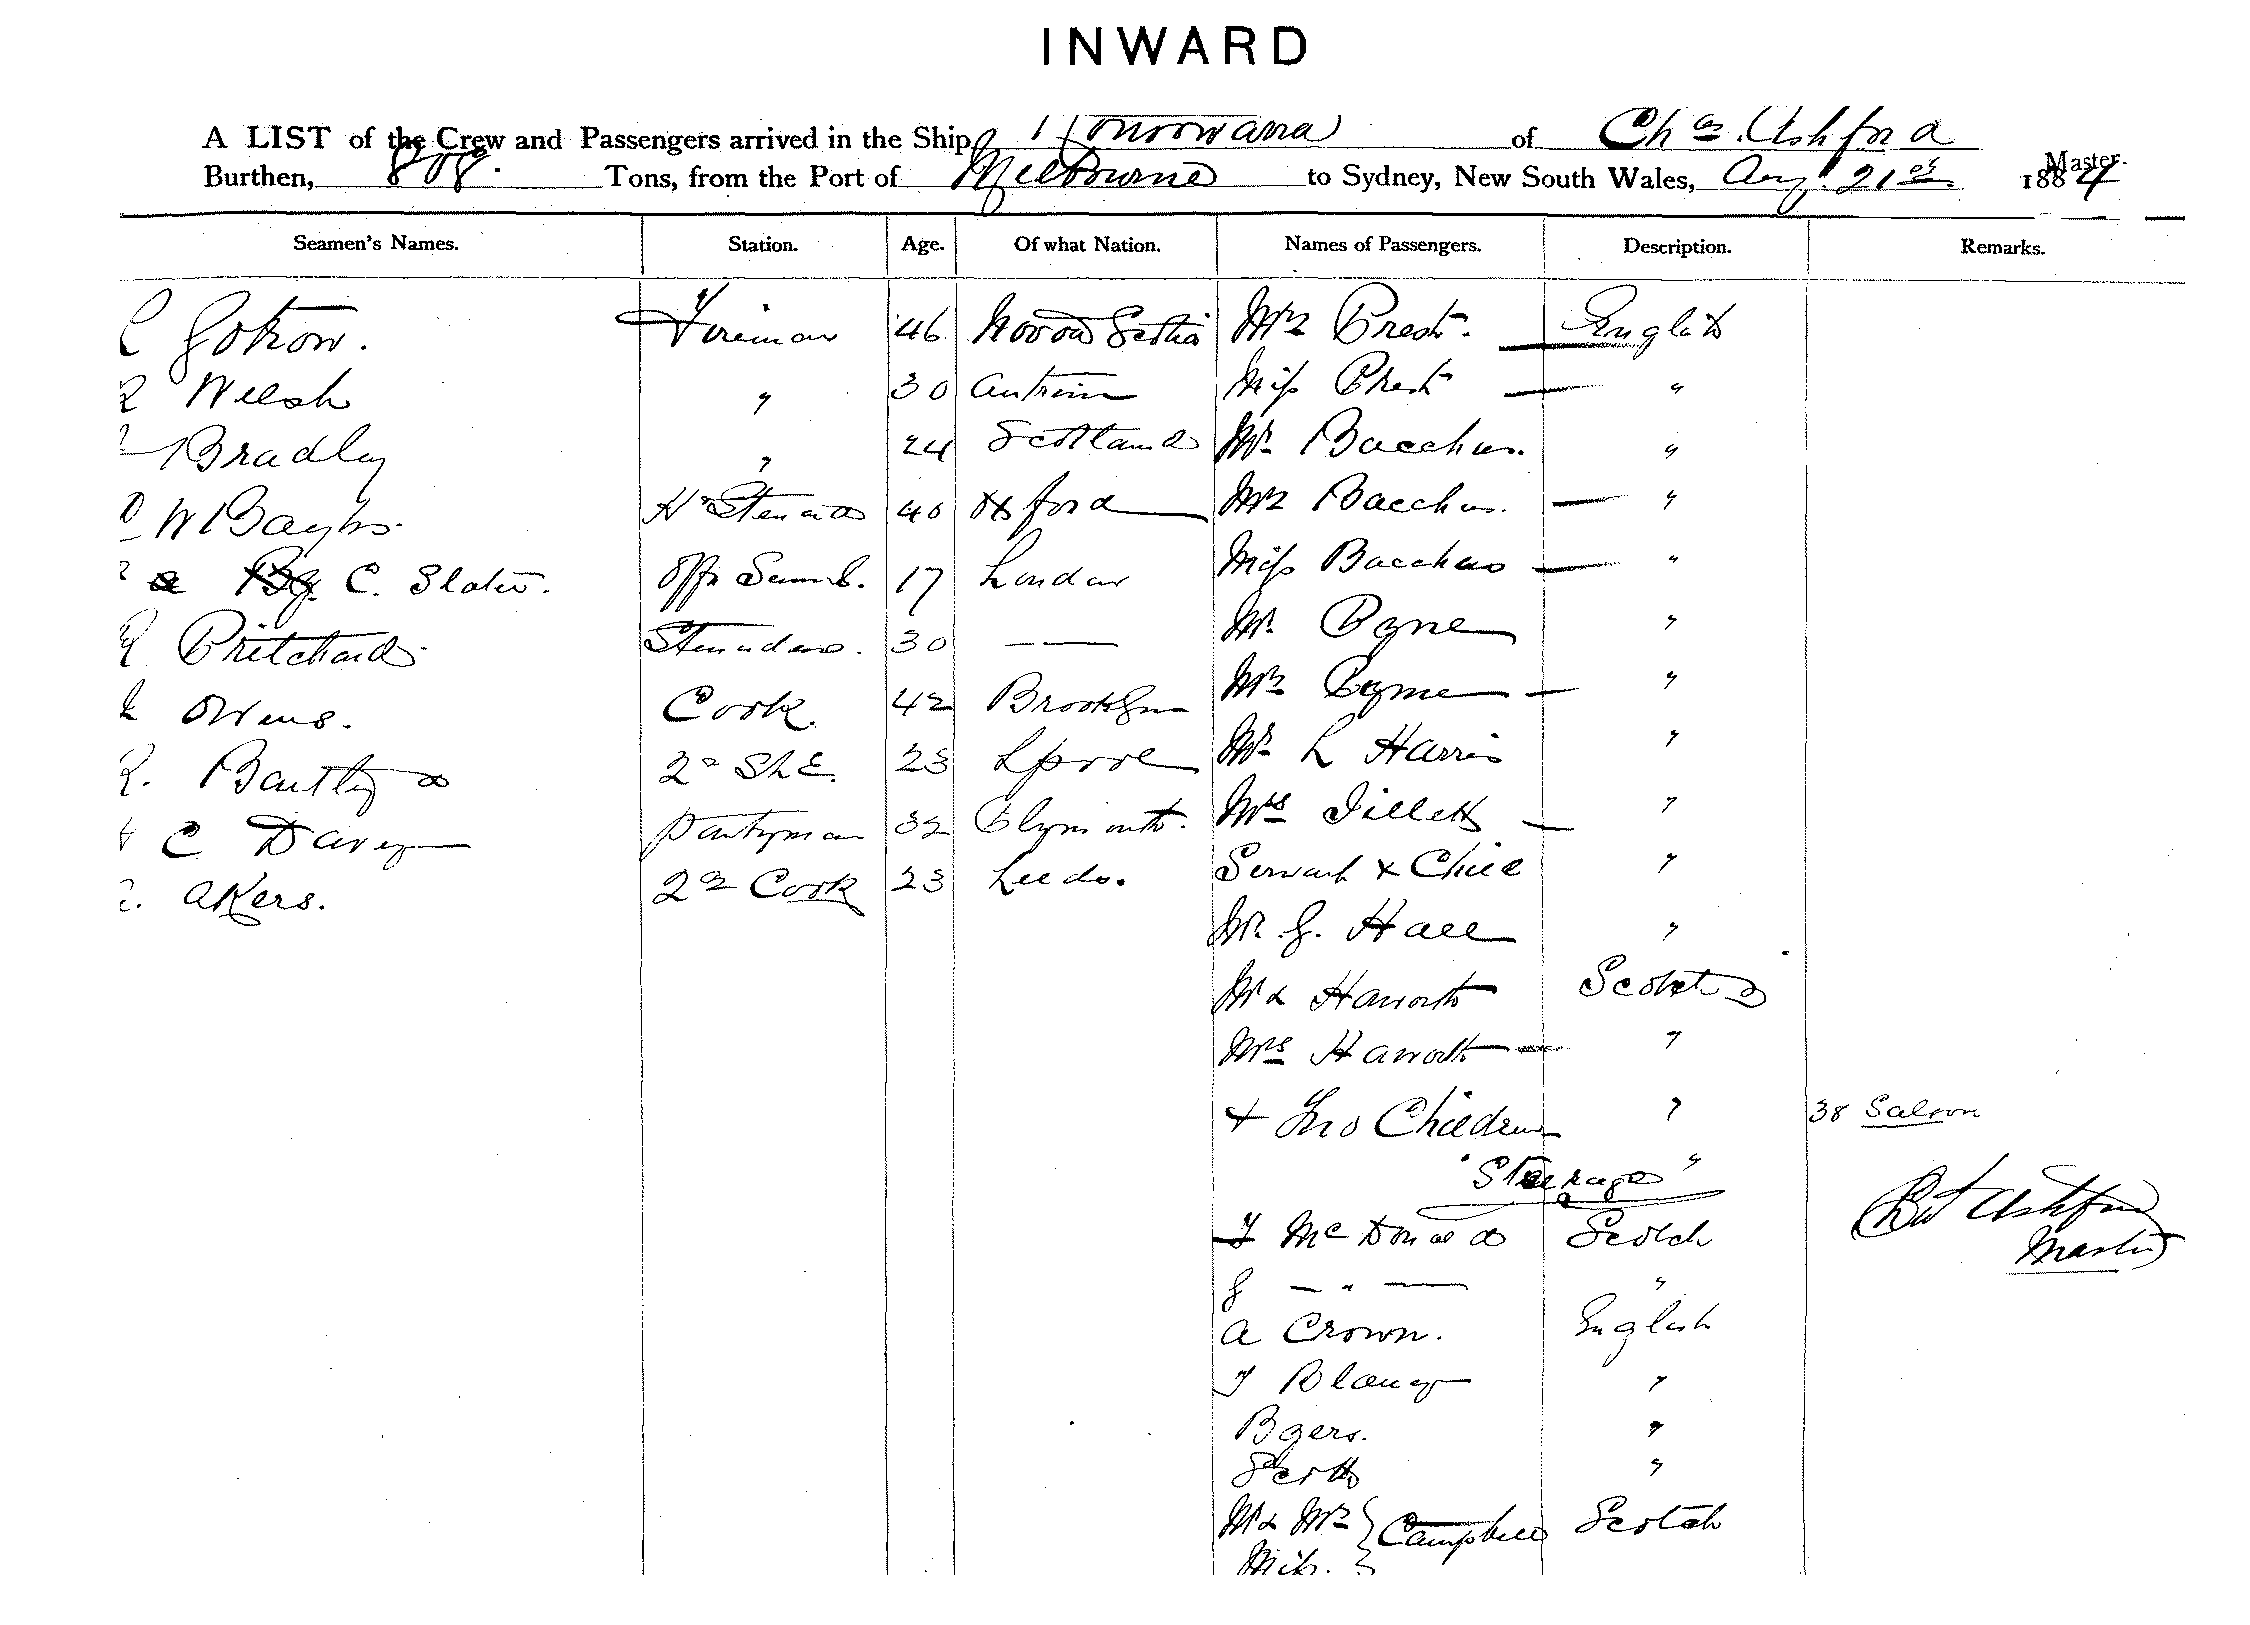 INWARD
A LIST of the Crew and Passengers arrived in the Ship Konoowarra of Chas. Ashford Master.
Burthen, 808. Tons, from the Port of Melbourne to Sydney, New South Wales, Aug. 21st 1884
Seamen's Names. Station. Age. Of what Nation. Names of Passengers. Description. Remarks.
Fireman 46 Nova Scotia Mrs Prest. English
Welsh " 30 Antrim Miss Prest "
Bradley " 24 Scotland Mr. Bacchus. "
W Bayliss 40 Oxford Mrs Bacchus. "
C. Slater. 17 London Miss Bacchus "
Pritchard Stewardess. 30 — Mr. Pyne "
Owens. Cook. 42 Brooklyn Mrs Pyne "
2d 23 Lpool Mr L Harris "
C Davey Pantryman 32 Plymouth. Mrs Tillett "
Akers. 2nd Cook 23 Leeds. Servant & Child "
Mr. G. Hall "
Mr & Haworth Scotch
Mrs Haworth "
+ Two Children " 38 Saloon
"Steerage"
T McDonald Scotch Ashford
J — " — " Master
A Crown. English
T Blaney "
Byers. "
"
Mr & Mrs } Campbell Scotch
Miss. }